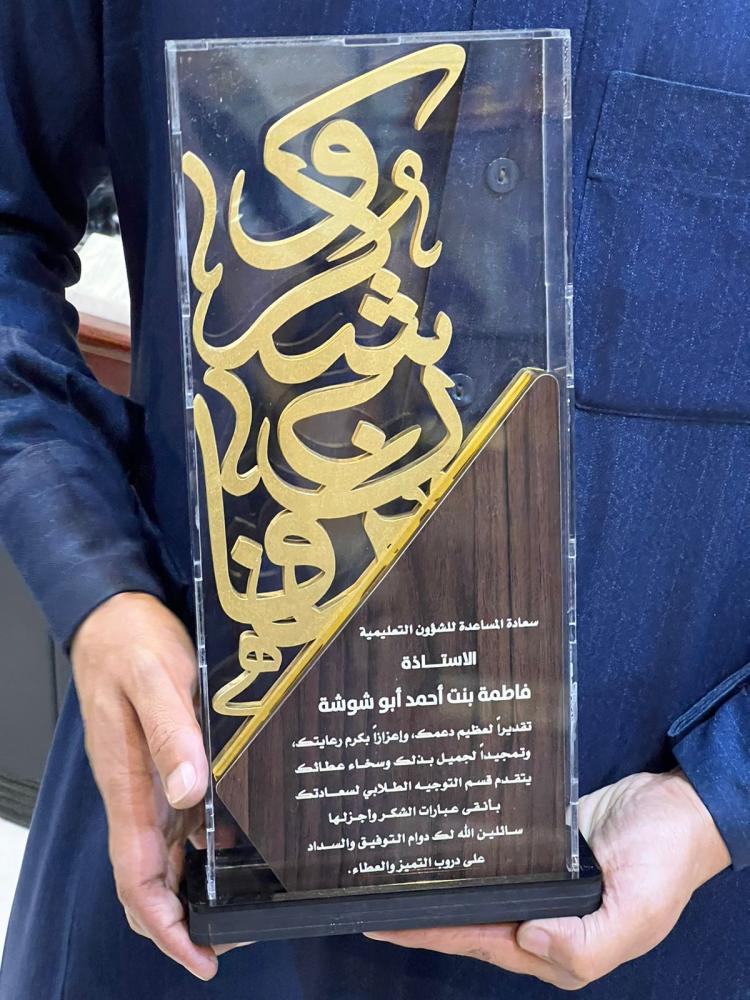 شكر
وعرفان
سعادة المساعدة للشؤون التعليمية
الاستـــاذة
فاطمة بنت أحمد أبو شوشة
تقديراً لعظيم دعمك، وإعزازاً بكرم رعايتك،
وتمجيداً لجميل بذلك وسخاء عطائك
يتقدم قسم التوجيه الطلابي لسعادتك
بأنقى عبارات الشكر وأجزلها
سائلين الله لك دوام التوفيق والسداد
على دروب التميز والعطاء.